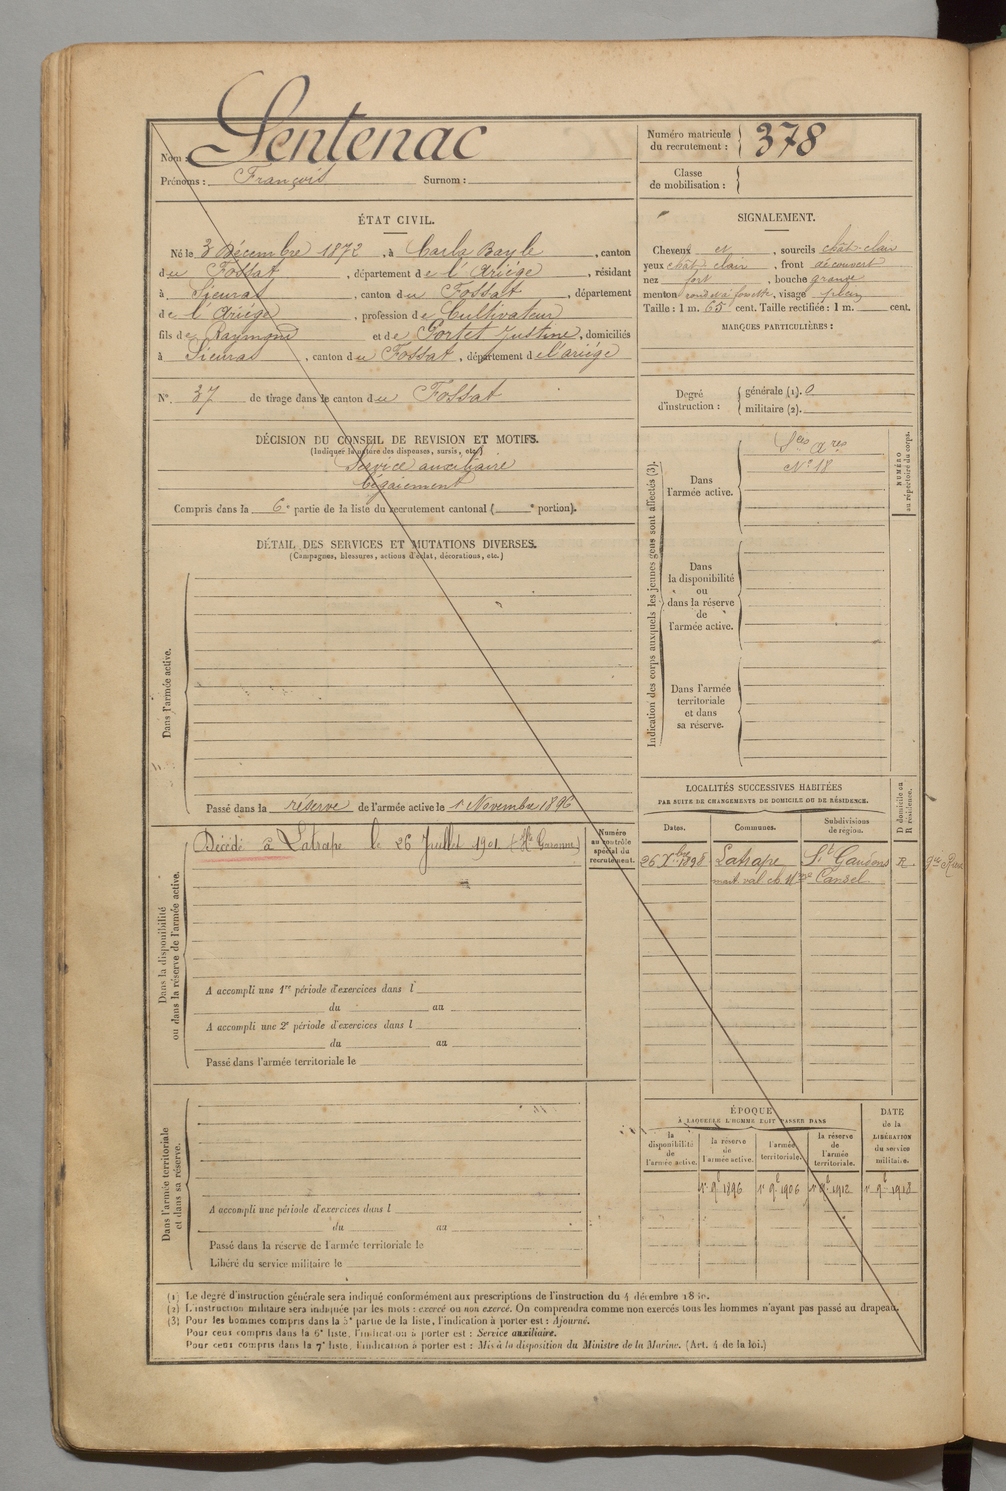 Nom : Sentenac
Prénoms : François Surnom :
Numéro matricule du recrutement : 378
Classe de mobilisation :
ÉTAT CIVIL.
Né le 3 Décembre 1872, à Carla Bayle, canton
du Fossat, département de l'Ariège, résidant
à Sieuras, canton du Fossat, département
de l'Ariège, profession de Cultivateur
fils de Raymond et de Portet Justine, domiciliés
à Sieuras, canton du Fossat, département de l'ariège
N°. 37 de tirage dans le canton du Fossat
SIGNALEMENT.
Cheveux et, sourcils chât-clair
yeux chât-clair, front découvert
nez fort, bouche grande
menton rond et à fossette, visage plein
Taille : 1 m. 65 cent. Taille rectifiée : 1 m. cent.
MARQUES PARTICULIÈRES :
Degré d'instruction : générale (1). 0
militaire (2).
DÉCISION DU CONSEIL DE REVISION ET MOTIFS.
(Indiquer la nature des dispenses, sursis, etc.)
Service auxiliaire
bégaiement
Compris dans la 6e partie de la liste du recrutement cantonal ( e portion).
DÉTAIL DES SERVICES ET MUTATIONS DIVERSES.
(Campagnes, blessures, actions d'éclat, décorations, etc.)
Dans l'armée active.
Passé dans la réserve de l'armée active le 1 Novembre 1896
Indication des corps auxquels les jeunes gens sont affectés (3).
NUMÉRO au répertoire du corps.
Dans l'armée active.
Sces Ares
N° 18
Dans la disponibilité ou dans la réserve de l'armée active.
Dans l'armée territoriale et dans sa réserve.
Dans la disponibilité ou dans la réserve de l'armée active.
Décédé à Latrape le 26 Juillet 1901 (Hte Garonne)
Numéro au contrôle spécial du recrutement.
A accompli une 1re période d'exercices dans l
du au
A accompli une 2e période d'exercices dans l
du au
Passé dans l'armée territoriale le
LOCALITÉS SUCCESSIVES HABITÉES
PAR SUITE DE CHANGEMENTS DE DOMICILE OU DE RÉSIDENCE.
D domicile ou R résidence.
Dates. Communes. Subdivisions de région.
26 Xbre 1898 Latrape St Gaudens R
Dans l'armée territoriale et dans sa réserve.
A accompli une période d'exercices dans l
du au
Passé dans la réserve de l'armée territoriale le
Libéré du service militaire le
ÉPOQUE
À LAQUELLE L'HOMME DOIT PASSER DANS
DATE de la LIBÉRATION du service militaire.
la disponibilité de l'armée active.
la réserve de l'armée active.
l'armée territoriale.
la réserve de l'armée territoriale.
1r 9b 1896 1r 9b 1906 1r 9b 1912 1r 9b 1918
(1) Le degré d'instruction générale sera indiqué conformément aux prescriptions de l'instruction du 4 décembre
(2) L'instruction militaire sera indiquée par les mots : exercé ou non exercé. On comprendra comme non exercés tous les hommes n'ayant pas passé au drapeau.
(3) Pour les hommes compris dans la 5e partie de la liste, l'indication à porter est : Ajourné.
Pour ceux compris dans la 6e liste, l'indication à porter est : Service auxiliaire.
Pour ceux compris dans la 7e liste, l'indication à porter est : Mis à la disposition du Ministre de la Marine. (Art. 4 de la loi.)